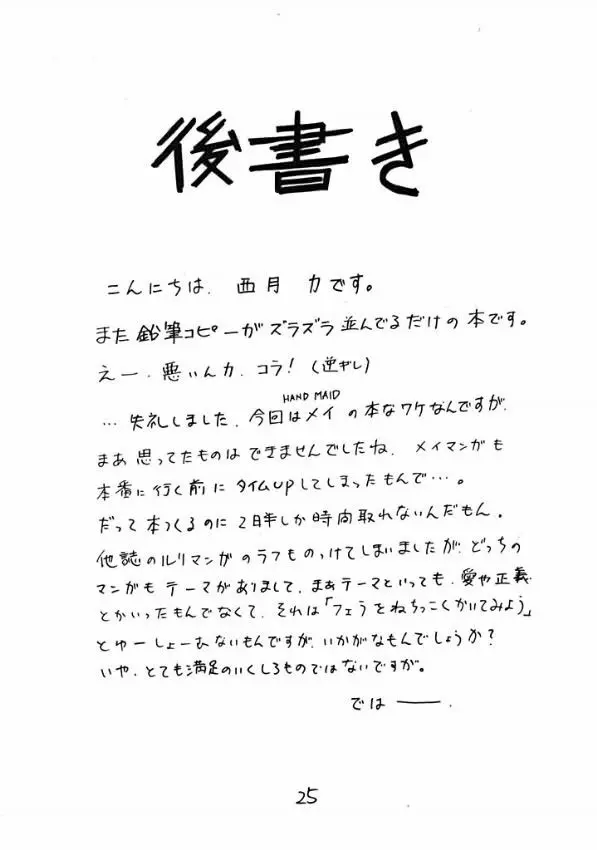 後書き
こんにちは. 西月 力です。
また 鉛筆コピーがズラズラ並んでるだけの本です。
えー. 悪いんカ. コラ!(逆ギレ)
HAND MAID
… 失礼しました. 今回はメイの本なワケなんですが.
まあ 思ってたものはできませんでしたね. メイマンガも
本番に行く前にタイムupしてしまったもんで…。
だって本つくるのに2日半しか時間取れないんだもん.
他誌のルリマンガのラフものっけてしまいましたが. どっちの
マンガもテーマがありまして. まぁテーマといっても. 愛や正義
とかいったもんでなくて. それは「フェラをねちっこくかいてみよう」
とゆーしょーもないもんですが. いかがなもんでしょうか?
いや. とても満足のいくしろものではないですが。
では――.
25